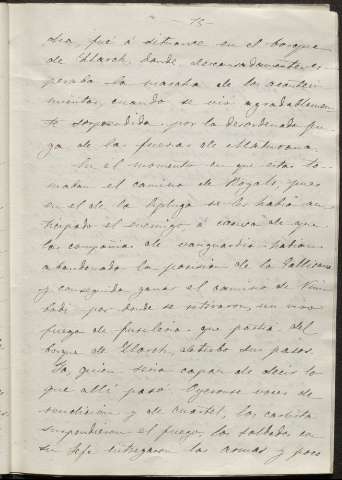 15
dra, fué á situarse en el bosque
de Llarch, donde descansadamente es-
peraba la marcha de los aconteci-
mientos, cuando se vió agradablemen-
te sorprendida por la desordenada fu-
ga de las fuerzas de Maturana.
En el momento en que estas to-
maban el camino de Rogals, pues
en el de la Espluga se les había an-
ticipado el enemigo á causa de que
las compañías de vanguardia habían
abandonado la posición de la
y conseguido ganar el camino de Vim-
bodí por donde se retiraron, un vivo
fuego de fusilería que partía del
bosque de Llarch, detuvo sus pasos.
Ya, quien sería capaz de decir lo
que allí pasó. Oyéronse voces de
rendición y de cuartel, los carlistas
suspendieron el fuego, los soldados con
su Jefe entregaron las armas, y poco